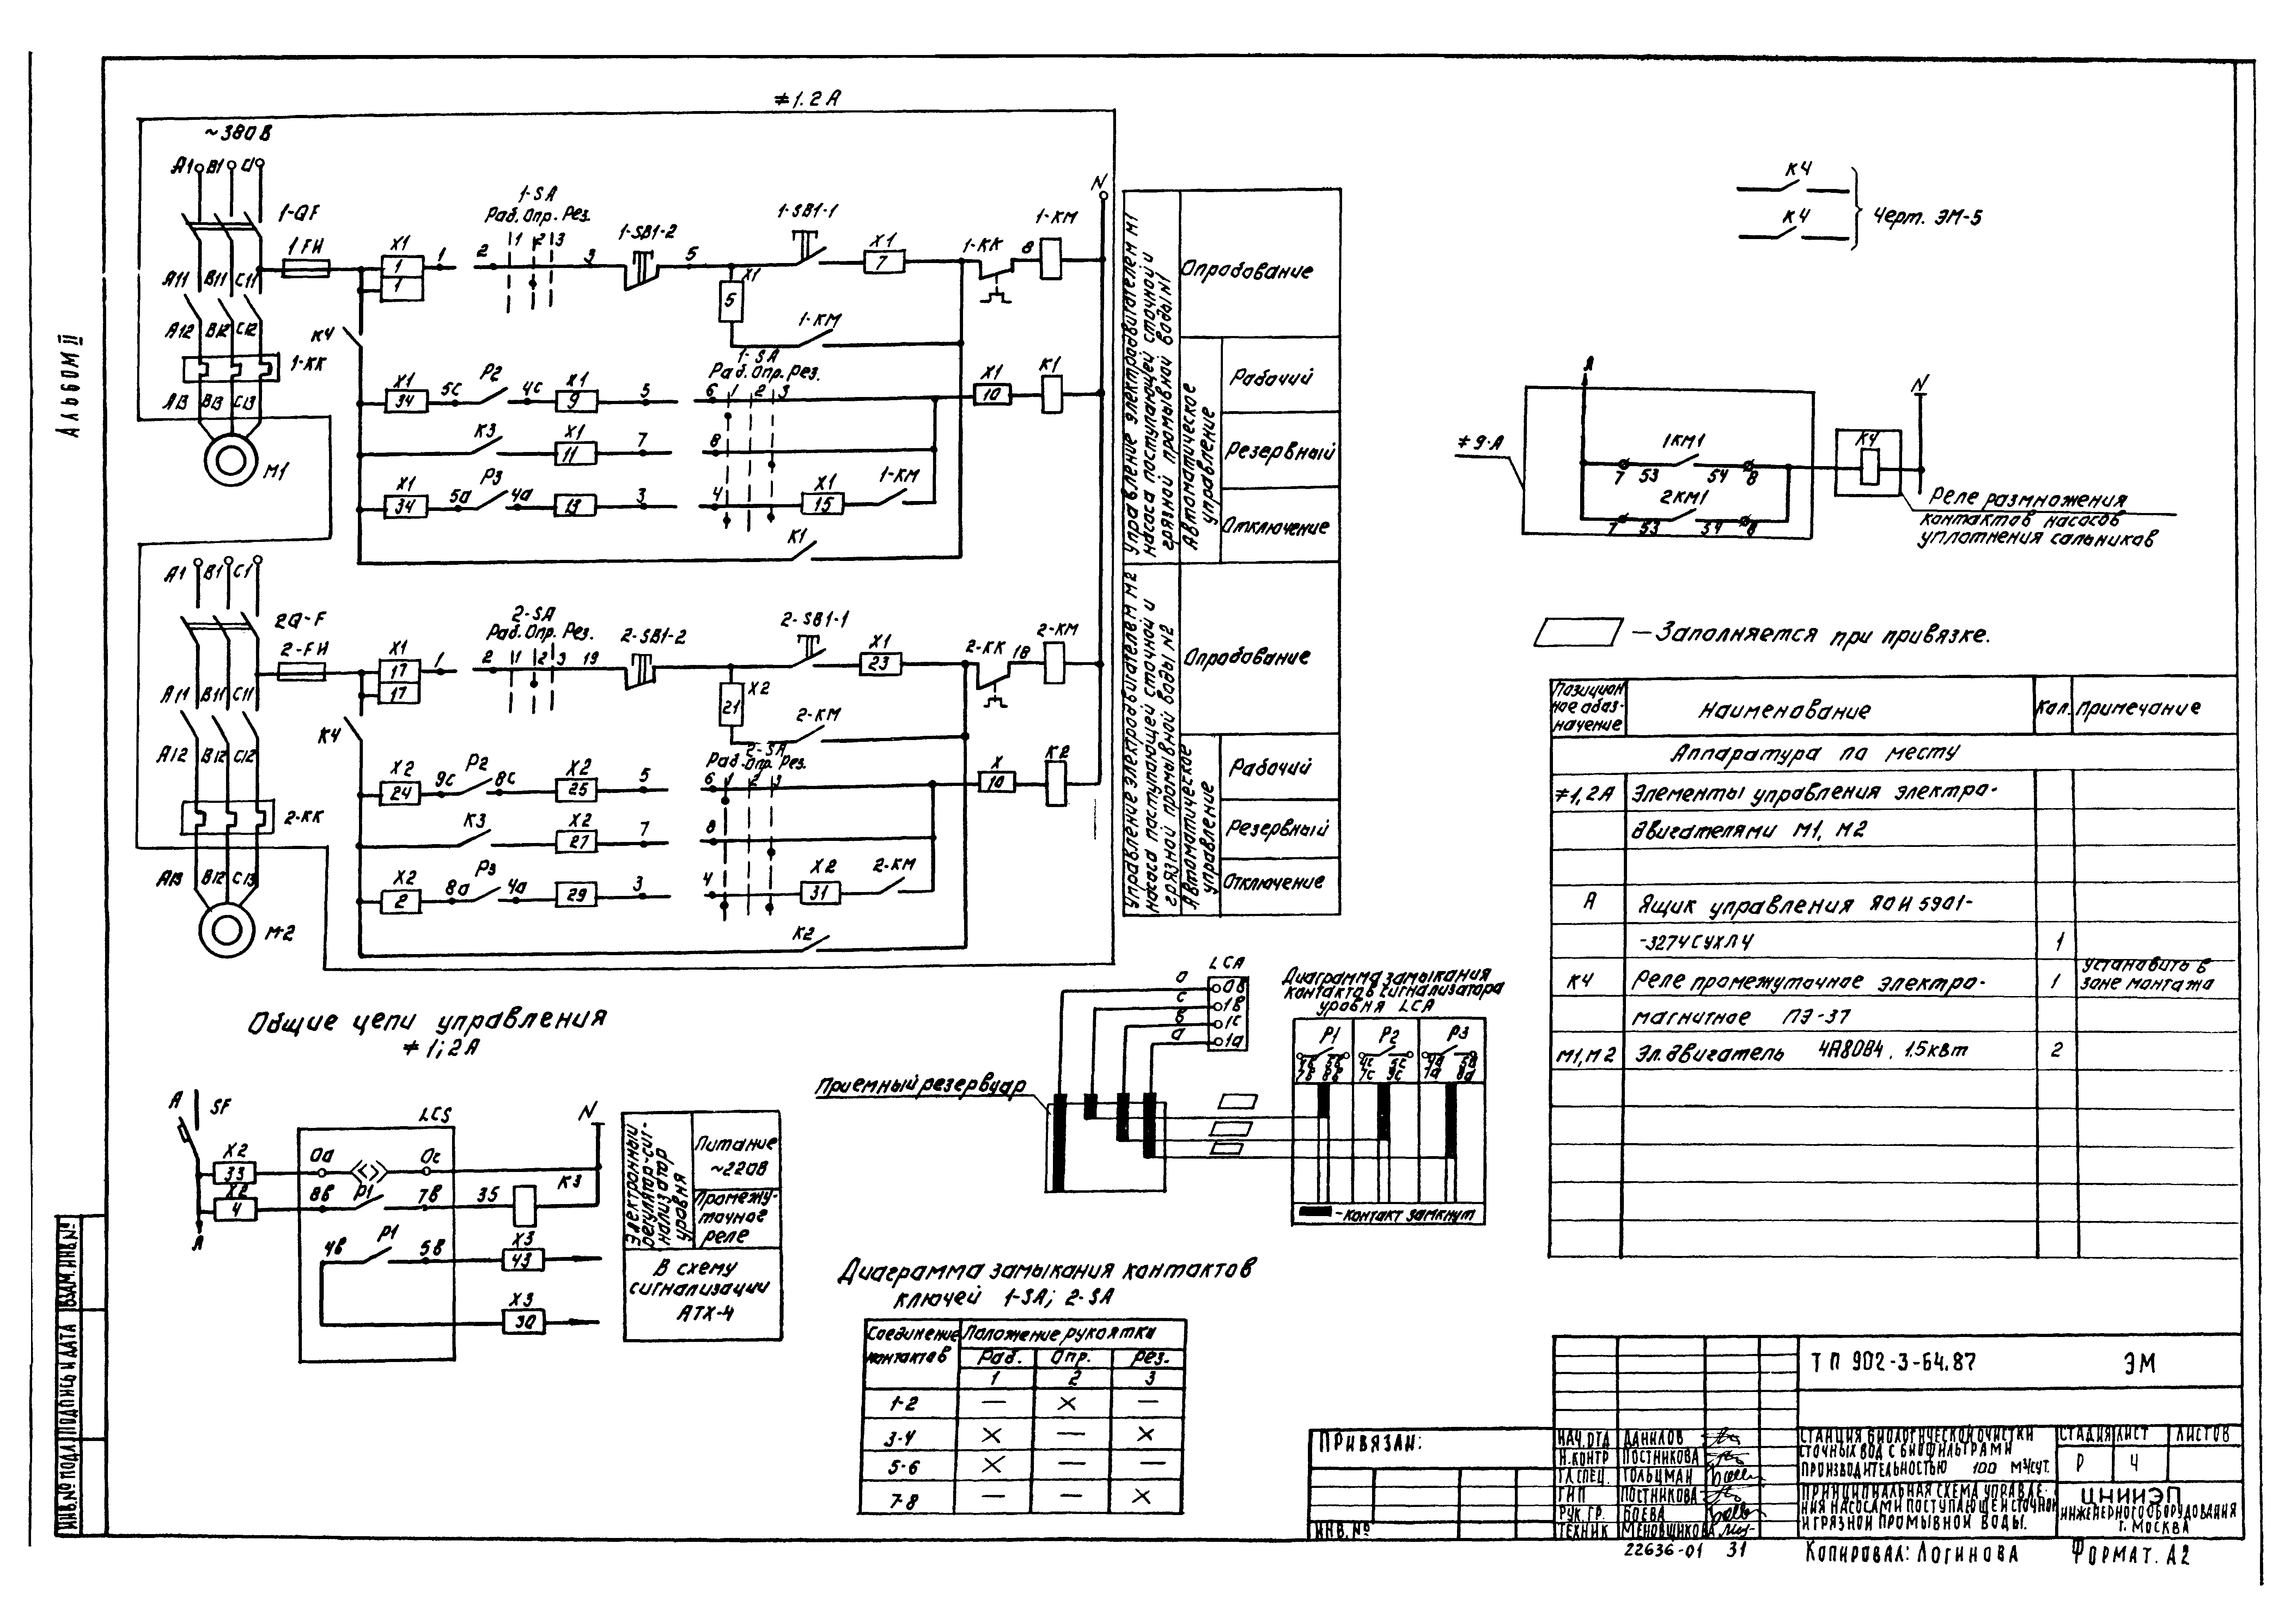 Альбом II
≠1.2А
~380В
А1 В1 С1
1-QF
1FИ
А11 В11 С11
А12 В12 С12
1-КК
А13 В13 С13
М1
1-SA
Раб. Опр. Рез.
1 2 3
X1
1
1
1 2 3
1-SB1-2
5
1-SB1-1
X1
7
1-КК
8
1-КМ
N
X1
5
1-КМ
К4
1-SA
Раб. Опр. Рез.
X1
34
5с
Р2
4с
X1
9
5
6
1 2 3
X1
10
К1
К3
X1
11
7
8
X1
34
5а
Р3
4а
13
3
4
X1
15
1-КМ
К1
Управление электродвигателем М1
насоса поступающей сточной и
грязной промывной воды N1
Опробование
Автоматическое
управление
Рабочий
Резервный
Отключение
А1 В1 С1
2Q-F
2-FИ
А11 В11 С11
А12 В12 С12
2-КК
А13 В12 С13
М2
2-SA
Раб. Опр. Рез.
1 2 3
X1
17
17
1 2 19
2-SB1-2
2-SB1-1
X1
23
2-КК
18
2-КМ
X2
21
2-КМ
К4
2-SA
Раб. Опр. Рез.
X2
24
9с
Р2
8с
X2
25
5
6
1 2 3
X
10
К2
К3
X2
27
7
8
X2
2
8а
Р3
4а
29
3
4
X2
31
2-КМ
К2
Управление электродвигателем М2
насоса поступающей сточной и
грязной промывной воды N2
Опробование
Автоматическое
управление
Рабочий
Резервный
Отключение
К4
К4
Черт. ЭМ-5
А
N
≠9-А
1КМ1
7 53 54 8
2КМ1
7 53 54 8
К4
Реле размножения
контактов насосов
уплотнения сальников
— Заполняется при привязке.
Позицион
ное обоз-
начение
Наименование
Кол.
Примечание
Аппаратура по месту
≠1,2А Элементы управления электро-
двигателями М1, М2
А Ящик управления ЯОИ 5901-
-3274СУХЛ4 1
К4 Реле промежуточное электро- 1 установить в
зоне монтажа
магнитное ПЭ-37
М1,М2 Эл.двигатель 4А80В4, 1.5кВт 2
Общие цепи управления
≠1;2А
А
SF
X2
33
X2
4
А
LCS
0а 0с
8в Р1 7в
35
К3
N
4в Р1 5в
X3
43
X3
30
Электронный
регулятор-сиг-
нализатор
уровня
Питание
~220В
Промежу-
точное
реле
В схему
сигнализации
АТХ-4
LCA
0 0в
с 1в
в 1с
а 1а
Приемный резервуар
Диаграмма замыкания
контактов сигнализатора
уровня LCA
Р1 Р2 Р3
4в 5в 4с 5с 4а 5а
7в 8в 7с 9с 7а 8а
-контакт замкнут
Диаграмма замыкания контактов
ключей 1-SA; 2-SA
Соединение
контактов
Положение рукоятки
Раб. Опр. Рез.
1 2 3
1-2 — × —
3-4 × — ×
5-6 × — —
7-8 — — ×
Привязан:
Инв.№
Нач.отд Данилов
Н.контр Постникова
Гл.спец. Гольцман
ГИП Постникова
Рук.гр. Боева
Техник Меновщикова
ТП 902-3-64.87 ЭМ
Станция биологической очистки
сточных вод с биофильтрами
производительностью 100 м³/сут.
Стадия Лист Листов
Р 4
Принципиальная схема управле-
ния насосами поступающей сточной
и грязной промывной воды.
ЦНИИЭП
инженерного оборудования
г. Москва
22636-01 31
Копировал: Логинова Формат. А2
Инв.№ подл Подпись и дата Взам.инв.№